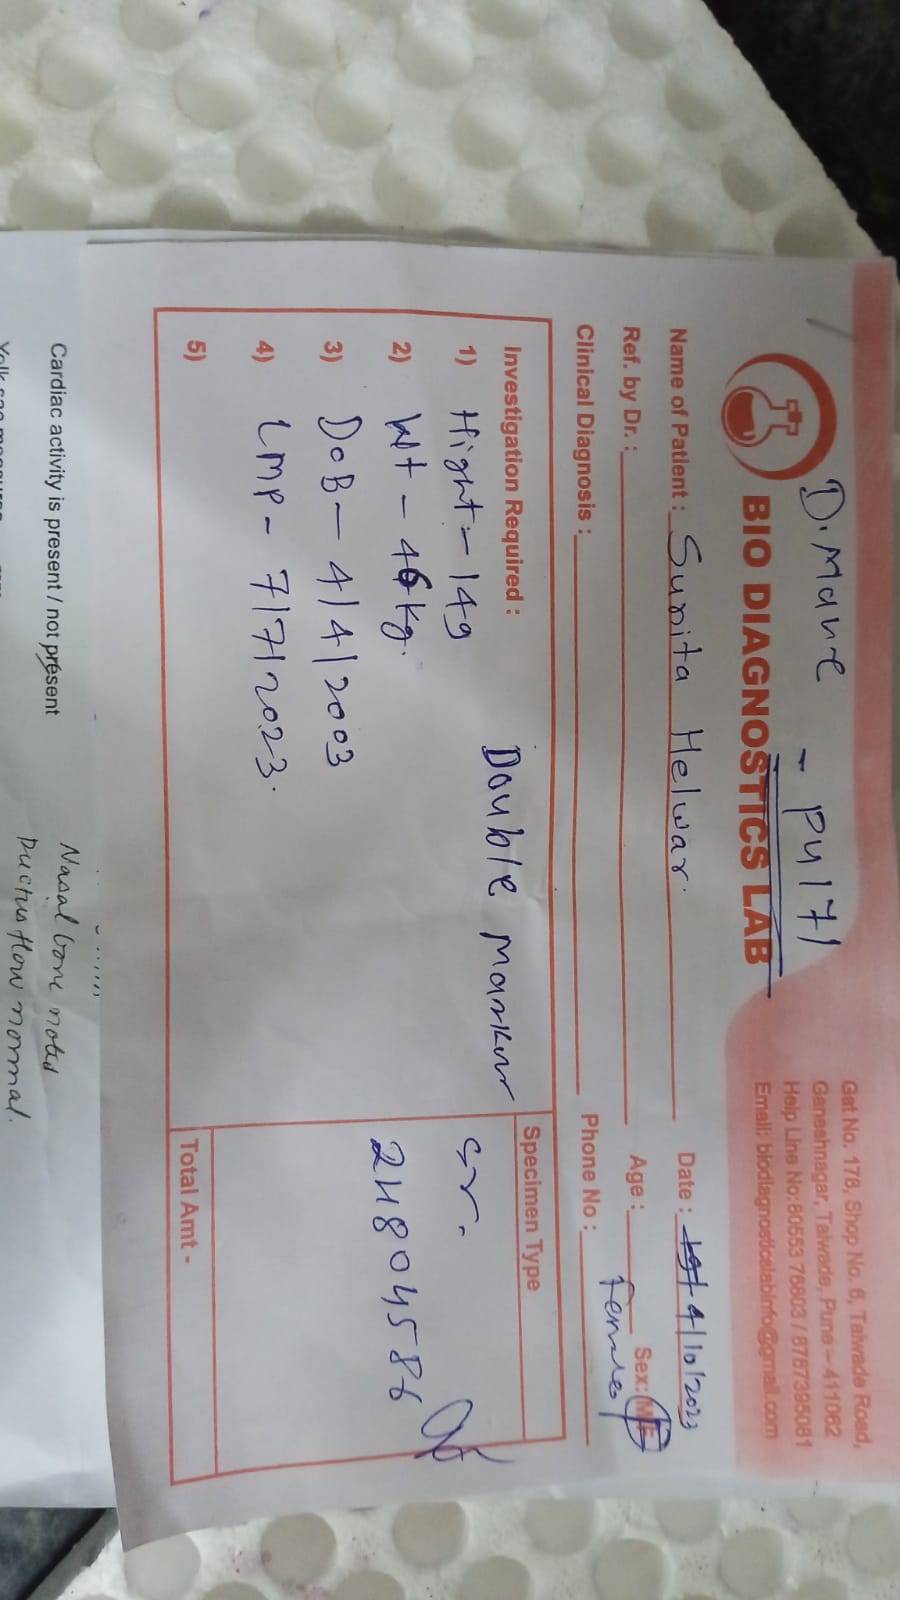 D. Mane - PU171
BIO DIAGNOSTICS LAB
Gat No. 178, Shop No. 6, Talwade Road,
Ganeshnagar, Talwade, Pune – 411062
Help Line No: 80553 76803 / 8767395081
Email: biodiagnosticslabinfo@gmail.com
Name of Patient : Sunita Helwar. Date : 4/10/2023
Ref. by Dr. : Age : Sex: M/F
Female
Clinical Diagnosis : Phone No :
Investigation Required : Specimen Type
Double Marker
1) Hight - 149 sr.
2) Wt - 46kg. 248045586
3) DOB - 4/4/2003
4) LMP - 7/7/2023.
5) Total Amt -
Cardiac activity is present / not present
Nasal bone noted
Ductus flow normal.